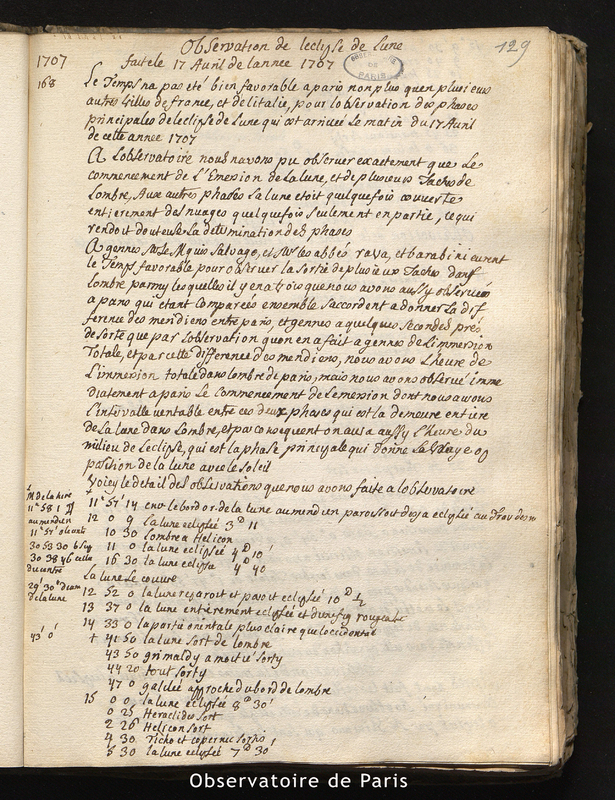 Observation de leclypse de Lune
129
1707 faite le 17 Auril de lannee 1707
OBSERVATOIRE DE PARIS
168
Le Temps na pas eté bien favorable a paris non plus quen plusieurs
autres Villes de france, et de litalie, pour lobservation des phases
principales de leclypse de Lune qui est arrivée le matin du 17 Auril
de cette annee 1707
A Lobservatoire nous navons pu observer exactement que Le
commencement de L'Emersion de la Lune, et de plusieurs Taches de
Lombre, Aux autres phases La lune etoit quelquefois couverte
entierement des nuages quelquefois seulement en partie, ce qui
rendoit douteuse La determination des phases
A gennes, Mr Le Mquis Salvago, et Mrs les abbés rava, et barabini eurent
le Temps favorable pour observer La Sortie de plusieurs Taches dans
Lombre parmy lesquelles il y en a trois que nous avons aussy observées
a paris qui etant comparées ensemble saccordent a donner La dif
ference des meridiens entre paris, et gennes a quelques Secondes pres
de sorte que par Lobservation quon en a fait a gennes de Limmersion
Totale, et par cette difference des meridiens, nous avons L'heure de
L'immersion totale dans lombre de paris, mais nous avons observé imme
diatement a paris Le Commencement de Lemersion dont nous avons
L'intervalle veritable entre ces deux phases qui est la demeure entiere
de La lune dans Lombre, et par consequent on aura aussy L'heure du
milieu de Leclipse, qui est la phase principale qui donne La Vraye op
position de la lune avec le soleil
Voicy le detail des observations que nous avons faite a lobservatoire
Mr de la hire
11h 57' 14 env le bord or. de la lune au merid en paroissoit desja eclypsé
11h 58 1
au meridien
12 0 9 La lune eclypsée 3D 11
11h 57'
10 30 Lombre a Helicon
30 53 30
11 0 la lune eclipsée 4D 10'
30 38 46
du centre
16 30 la lune eclipsée 4D 40
La lune Se couvre
29' 30"
de la lune
12 52 0 la lune reparoit et paroit eclypsée 10D ½
13 37 0 la lune entierement eclypsée et dun feu rougeatre
14 33 0 la partie orientale plus claire que loccidentale
43' 0"
+ 41 50 la lune Sort de lombre
43 50 grimaldy a moitié sorty
44 20 tout sorty
47 0 galilée approche du bord de lombre
15 0 0 la lune eclypsée 8D 30'
0 25 Heraclides sort
2 26 Helicon sort
4 30 Ticho et copernic sortis
5 30 la lune eclypsée 7D 30'
Observatoire de Paris